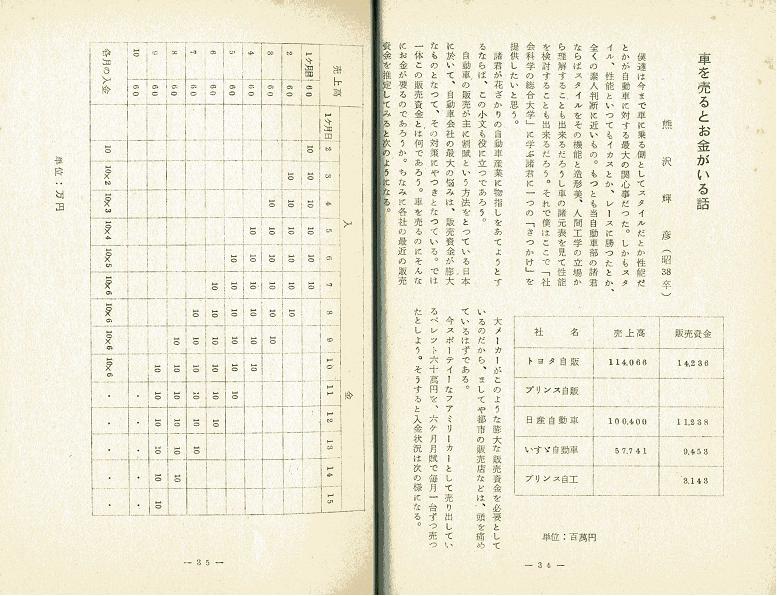 車を売るとお金がいる話
熊沢輝彦(昭38卒)
僕達は今まで車に乗る側としてスタイルだとか性能だ
とかが自動車に対する最大の関心事だつた。しかもスタ
イル、性能といつてもイカスとか、レースに勝つたとか、
全くの素人判断に近いもの。もつとも当自動車部の諸君
ならばスタイルをその機能と造形美、人間工学の立場か
ら理解することも出来るだろうし車の諸元表を見て性能
を検討することも出来るだろう。それで僕はここで「社
会科学の総合大学」に学ぶ諸君に一つの「きつかけ」を
提供したいと思う。
諸君が花ざかりの自動車産業に物指しをあてようとす
るならば、この小文も役に立つであろう。
自動車の販売が主に割賦という方法をとつている日本
に於いて、自動車会社の最大の悩みは、販売資金が膨大
なものとなつて、その対策にやつきとなつている。では
一体この販売資金とは何であろう。車を売るのにそんな
にお金が要るのであろうか。ちなみに各社の最近の販売
資金を推定してみると次のようになる。
社名 売上高 販売資金
トヨタ自販 114,066 14,236
プリンス自販
日産自動車 100,400 11,238
いすゞ自動車 57,741 9,453
プリンス自工 3,143
単位:百萬円
大メーカーがこのような膨大な販売資金を必要として
いるのだから、ましてや都市の販売店などは、頭を痛め
ているはずである。
今スポーテイーなフアミリーカーとして売り出してい
るベレツト六十萬円を、六ケ月月賦で毎月一台ずつ売つ
たとしよう。そうすると入金状況は次の様になる。
— 34 —
売上高 入金
1ケ月目 2 3 4 5 6 7 8 9 10 11 12 13 14 15
1ケ月目 60 10 10 10 10 10 10
2 60 10 10 10 10 10 10
3 60 10 10 10 10 10 10
4 60 10 10 10 10 10 10
5 60 10 10 10 10 10 10
6 60 10 10 10 10 10 10
7 60 10 10 10 10 10 10
8 60 10 10 10 10 10 10
9 60 10 10 10 10 10 10
10 60 · · · · ·
各月の入金 10 10×2 10×3 10×4 10×5 10×6 10×6 10×6 10×6 · · · · ·
単位:万円
— 35 —